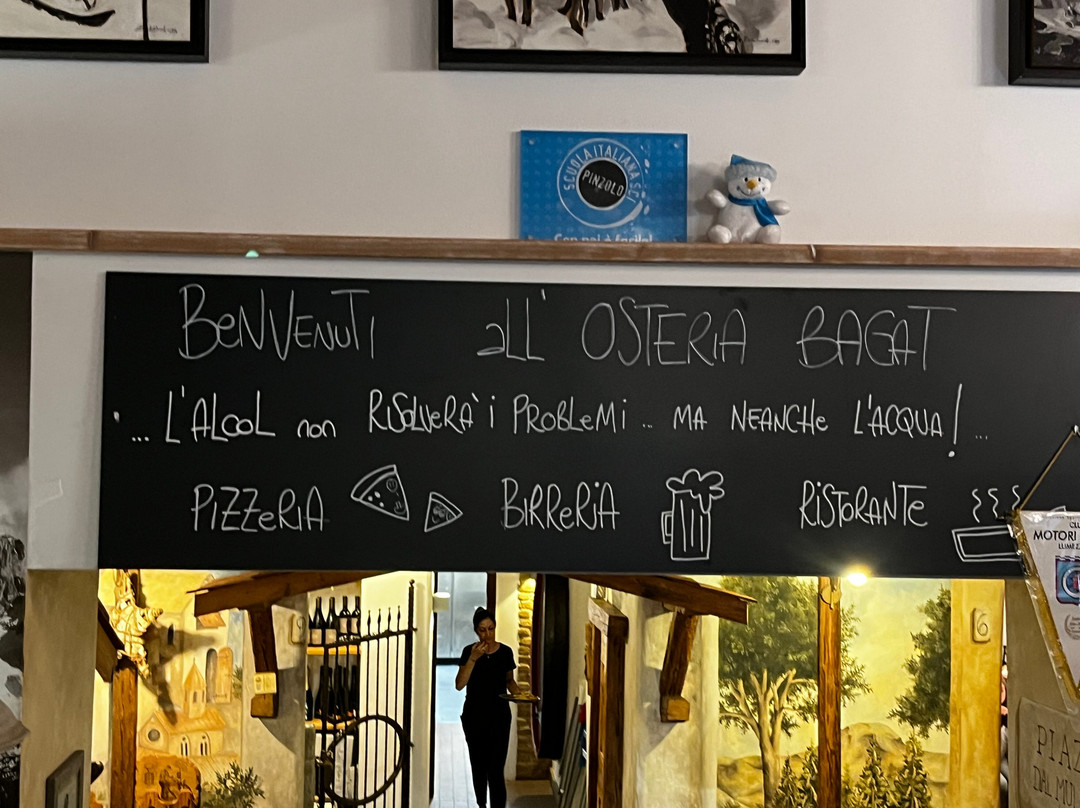 SCUOLA ITALIANA SCI
PINZOLO
Con noi è facile!
BeNVeNUTI all' OSTERIA BAGAT
... L'ALcoL non RISOLVERA' i PROBLeMi ... MA NEANCHe L'ACQUA! ...
PIZZeRIA BIRReRiA RiSTORANTe
MOTORI
6